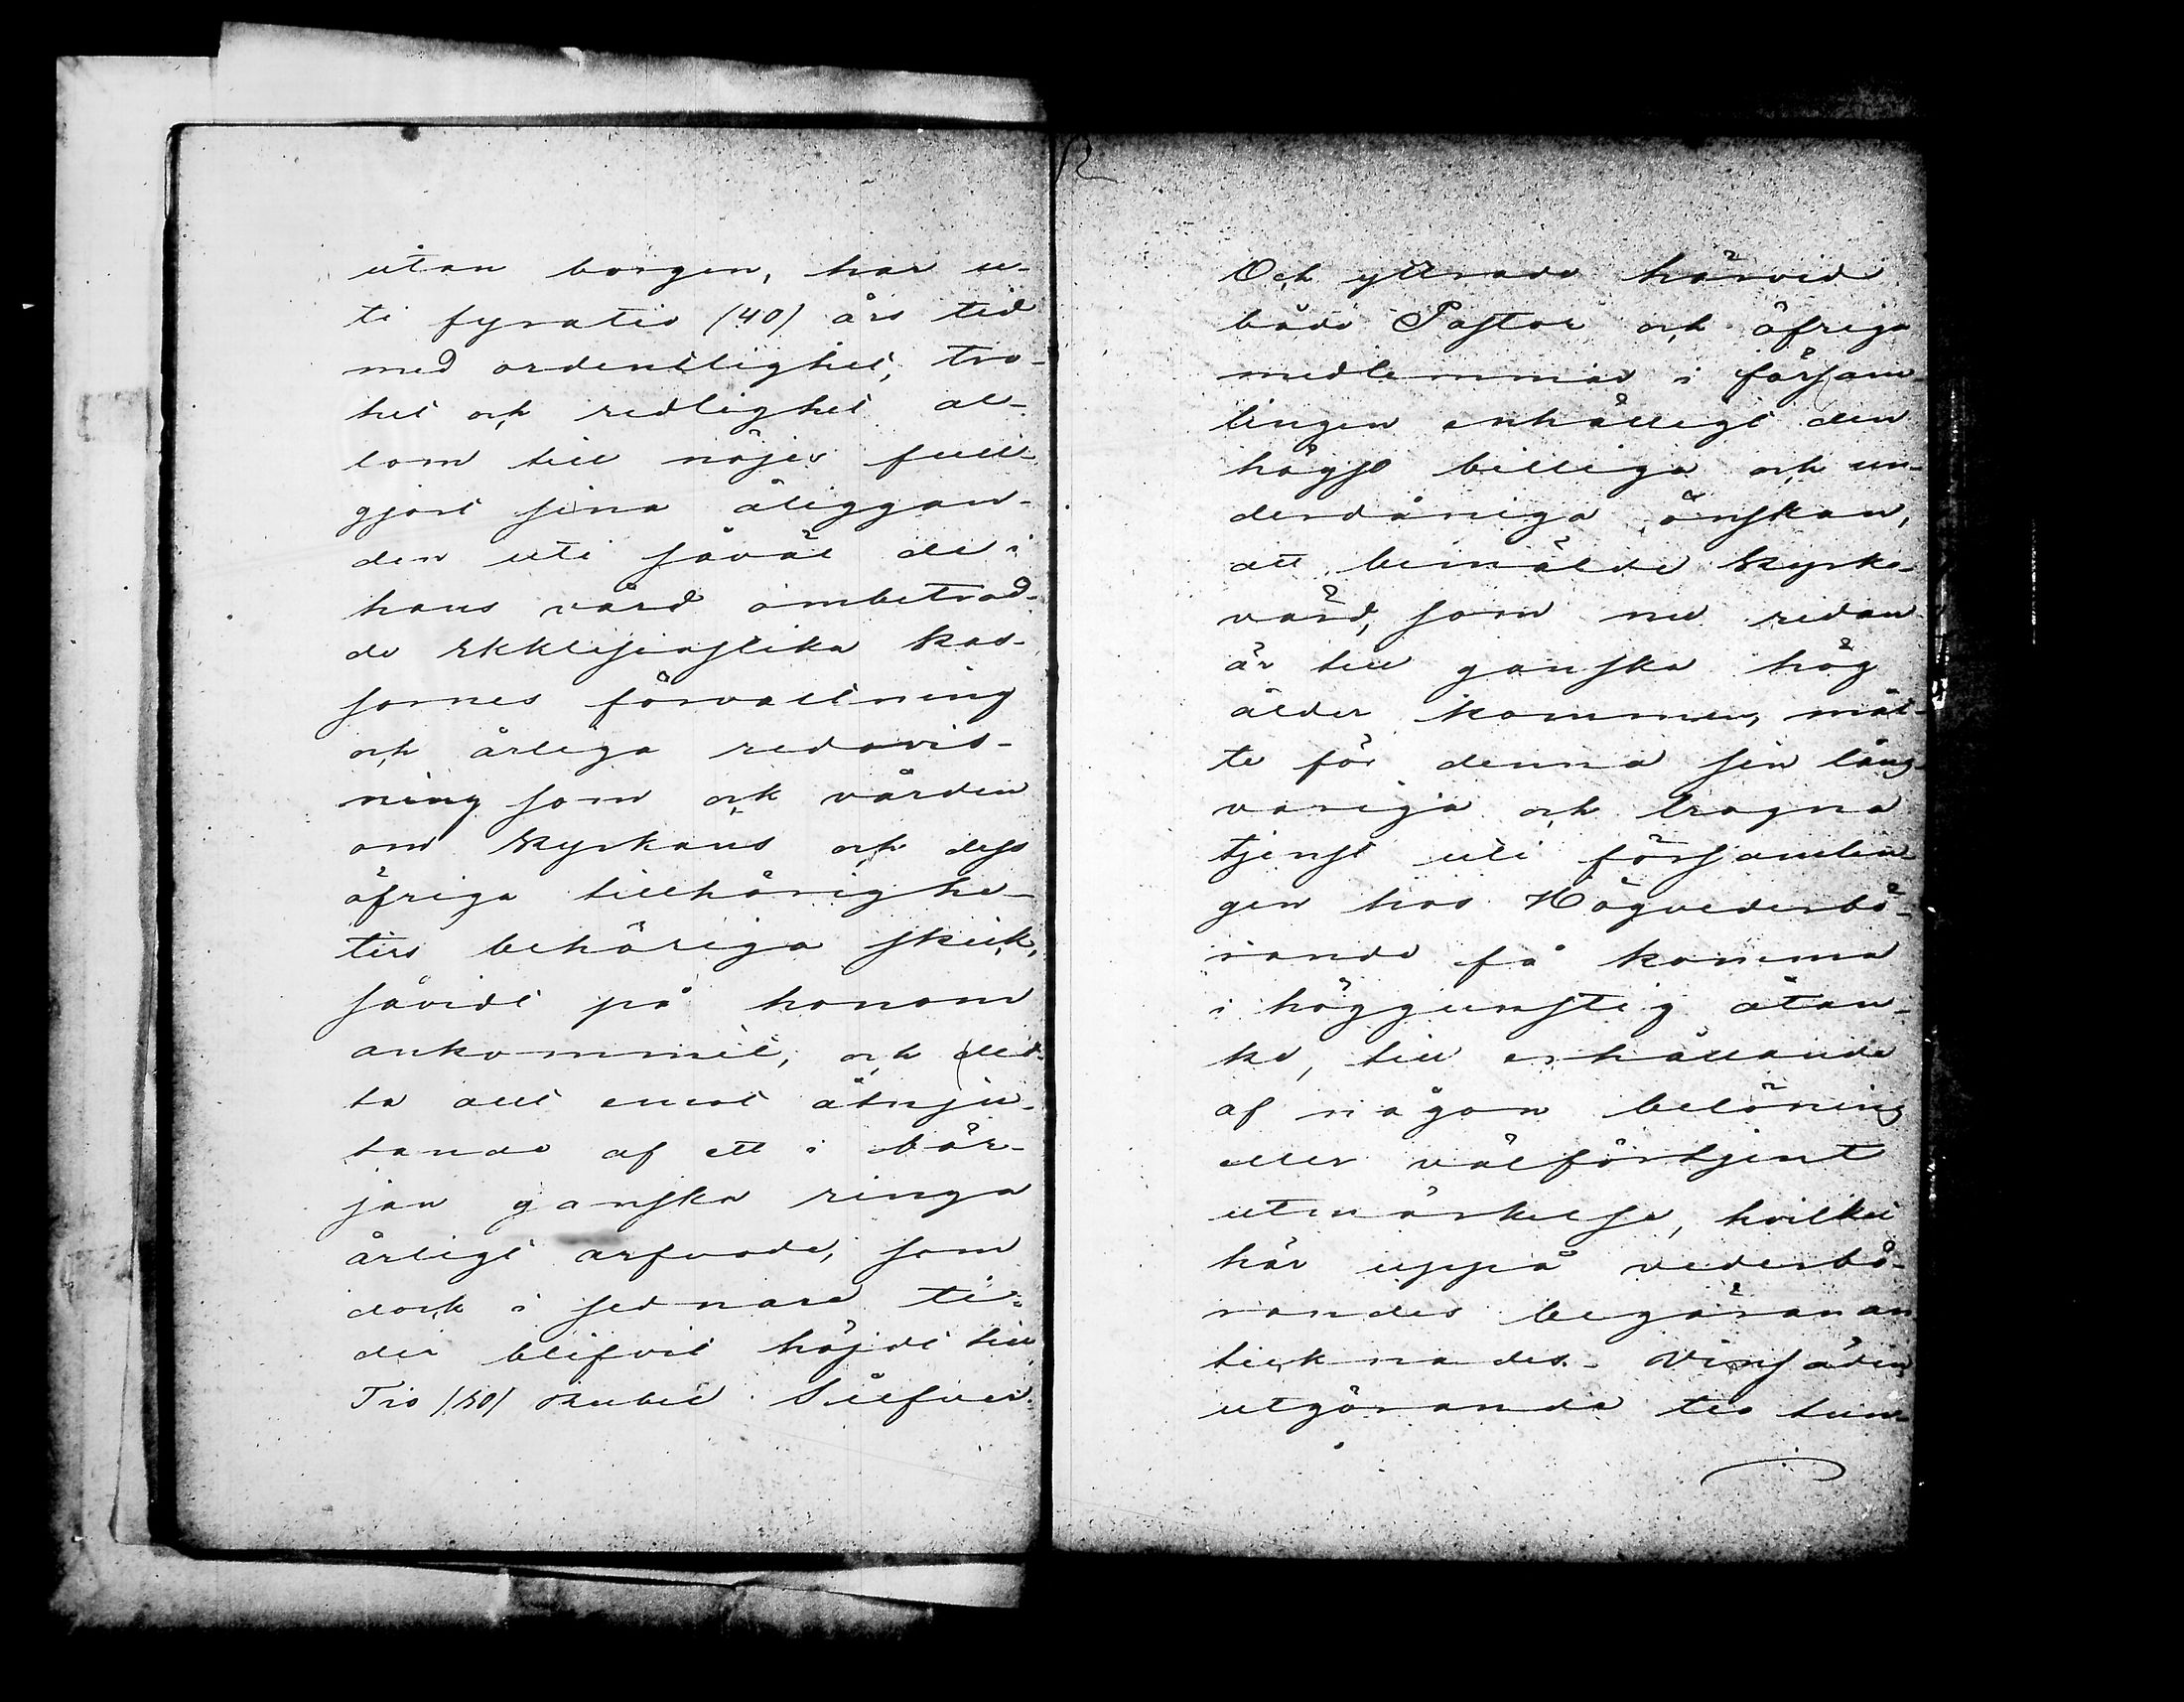 utan borgen, har u-
ti fyratio (40) års tid
med ordentlighet, tro-
het och redlighet al-
lom till nöjes full-
gjort sina åliggan-
den uti såväl de i
hans vård ombetrod-
de Ekklesiastika kas-
sornes förvaltning
och årliga redovis-
ning som ock vården
om kyrkans och dess
öfriga tillhörighe-
ters behöriga skick,
såvidt på honom
ankommit, och det-
ta allt emot åtnju-
tande af ett i bör-
jan ganska ringa
årligt arfvode, som
dock i sednare ti-
der blifvit höjdt till
Tio (10) Rubel Silfver.
Och yttrade härvid
både Pastor och öfriga
medlemmar i försam-
lingen enhälligt den
högst billiga och un-
derdåniga önskan,
att bemälde kyrko-
värd, som nu redan
är till ganska hög
ålder kommen, måt-
te för denna sin lång-
variga och trogna
tjenst uti församlin-
gen hos Högvederbö-
rande få komma
i höggunstig åtan-
ke, till erhållande
af någon belöning
eller välförtjent
utmärkelse, hvilket
här uppå vederbö-
randes begäran an-
tecknades. Vinsäden
utgörande tio tun-